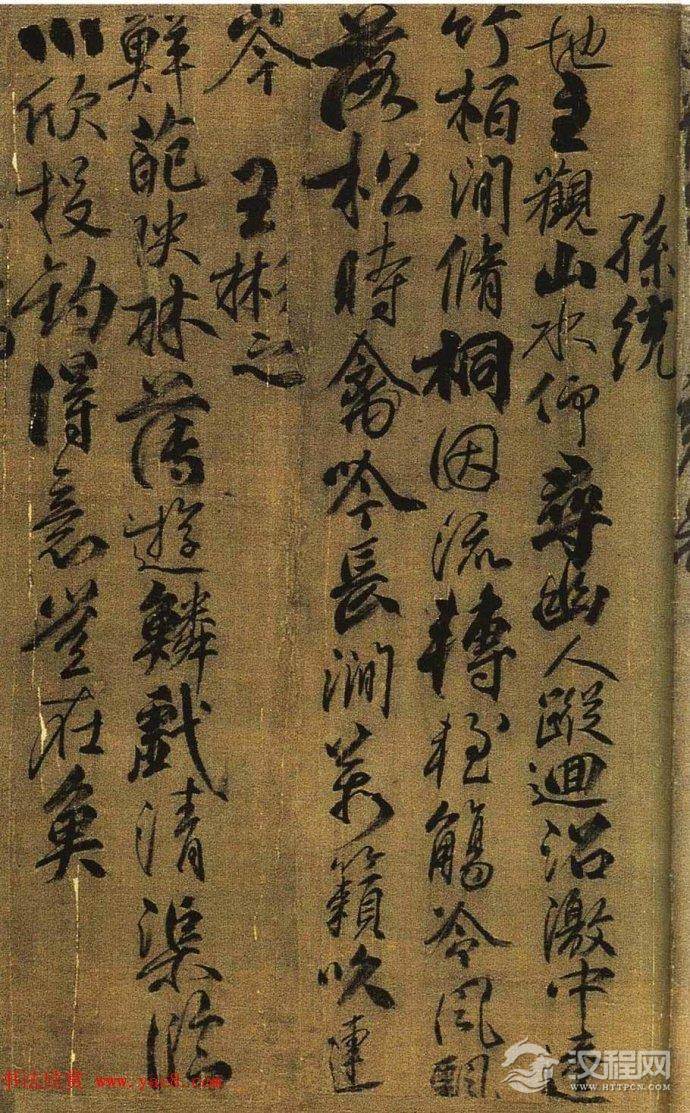 孫統
地主觀山水仰尋幽人蹤迴沼激中逵
竹栢澗脩桐因流轉輕觴冷風飄
落松時禽吟長澗萬籟吹連
岑
王彬之
鮮葩映林薄遊鱗戲清渠臨
川欣投釣得意豈在魚
书法欣赏 www.yac8.com
汉程网
WWW.HTTPCN.COM